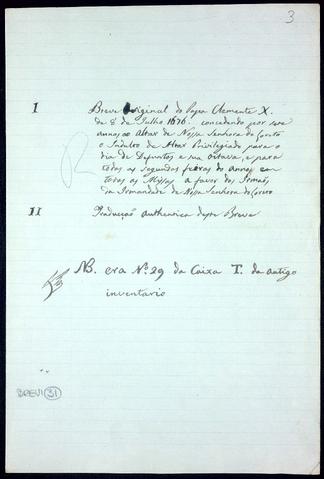 3
I Breve original do Papa Clemente X.
de 8 de Julho 1676. concedendo por sete
annos ao Altar de Nossa Senhora do Loreto
o Indulto de Altar Privilegiado para o
dia de Defuntos e sua octava, e para
todas as segundas feiras do anno, em
todas as Missas a favor dos Irmãos
da Irmandade de Nossa Senhora do Loreto
II Traducção authentica deste Breve
NB. era Nº 29 da Caixa T. do antigo
inventario
BREVI 31